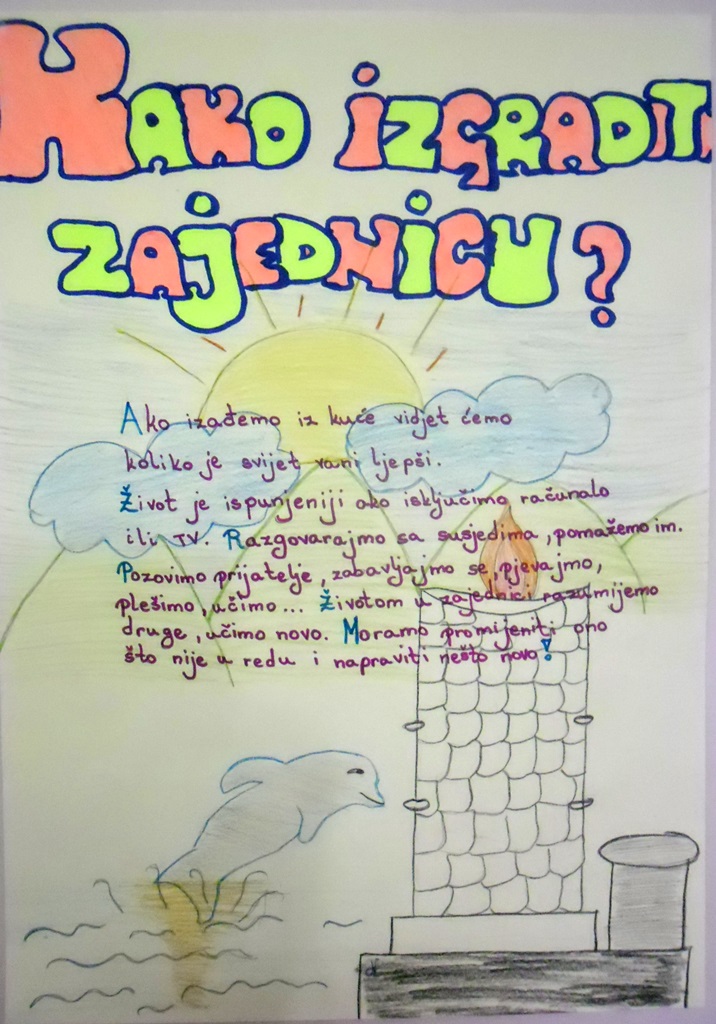 KAKO IZGRADITI
ZAJEDNICU?
Ako izađemo iz kuće vidjet ćemo
koliko je svijet vani ljepši.
Život je ispunjeniji ako isključimo računalo
ili TV. Razgovarajmo sa susjedima, pomažemo im.
Pozovimo prijatelje, zabavljajmo se, pjevajmo,
plešimo, učimo... Životom u zajednici razumijemo
druge, učimo novo. Moramo promijeniti ono
što nije u redu i napraviti nešto novo!